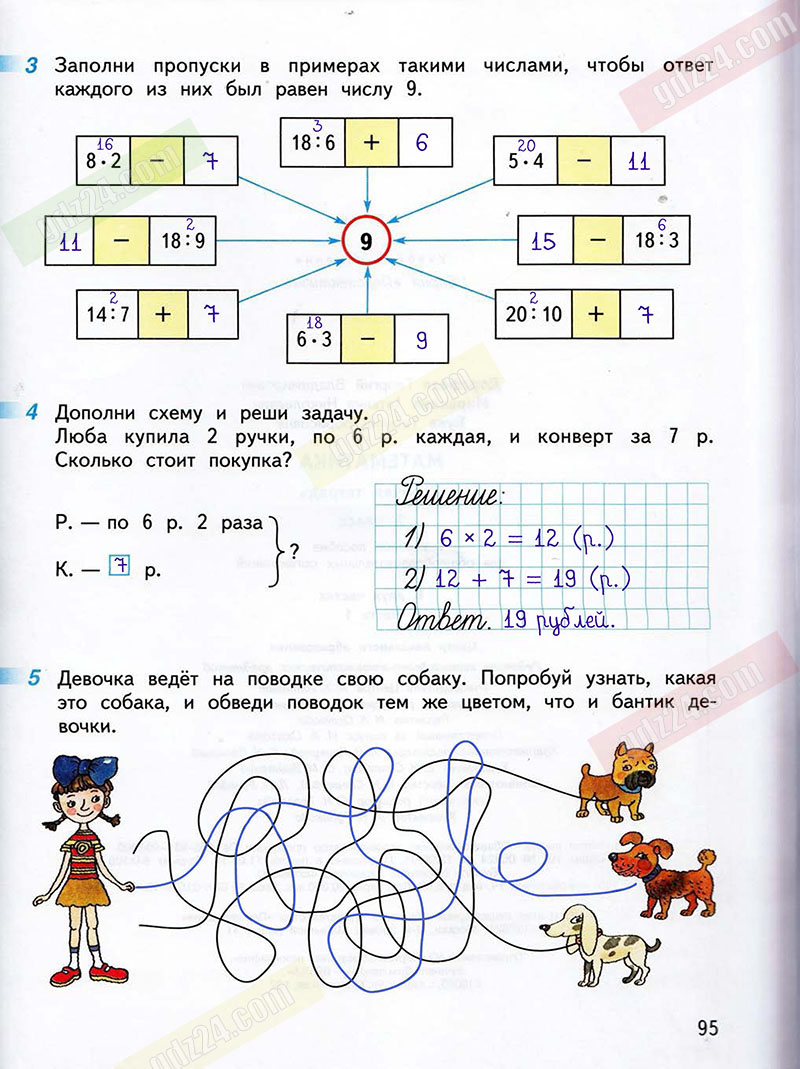 gdz24.com
3 Заполни пропуски в примерах такими числами, чтобы ответ
каждого из них был равен числу 9.
16
8·2 − 7
3
18:6 + 6
20
5·4 − 11
gdz24.com
2
11 − 18:9
9
6
15 − 18:3
2
14:7 + 7
18
6·3 − 9
2
20:10 + 7
4 Дополни схему и реши задачу.
Люба купила 2 ручки, по 6 р. каждая, и конверт за 7 р.
Сколько стоит покупка?
gdz24.com
Р. — по 6 р. 2 раза
К. — 7 р.
?
Решение:
1) 6 × 2 = 12 (р.)
2) 12 + 7 = 19 (р.)
Ответ. 19 рублей.
5 Девочка ведёт на поводке свою собаку. Попробуй узнать, какая
это собака, и обведи поводок тем же цветом, что и бантик де-
вочки.
gdz24.com
gdz24.com
95